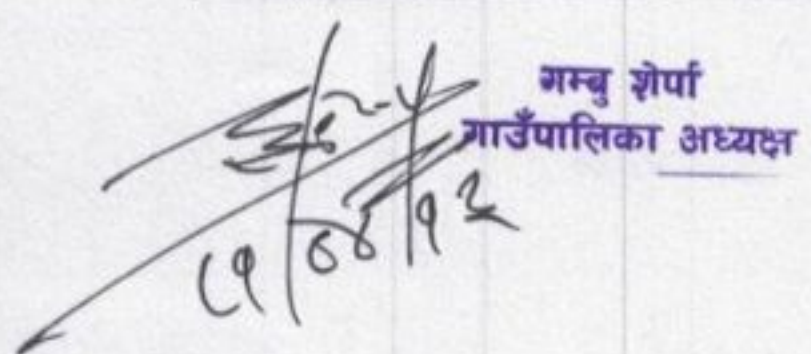 गम्बु शेर्पा
गाउँपालिका अध्यक्ष
८१/०४/१३